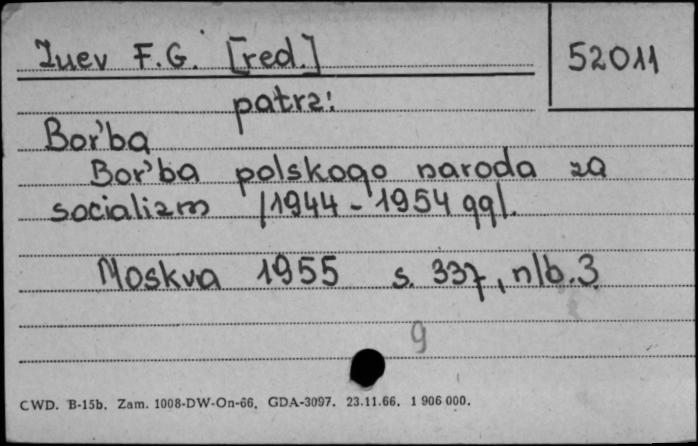 Zuev F.G. [red.]
52011
patrz:
Bor'ba
Bor'ba polskogo naroda za
socializm /1944 - 1954 gg/.
Moskva 1955 s. 337, nlb. 3
9
CWD. B-15b. Zam. 1008-DW-On-66. GDA-3097. 23.11.66. 1 906 000.